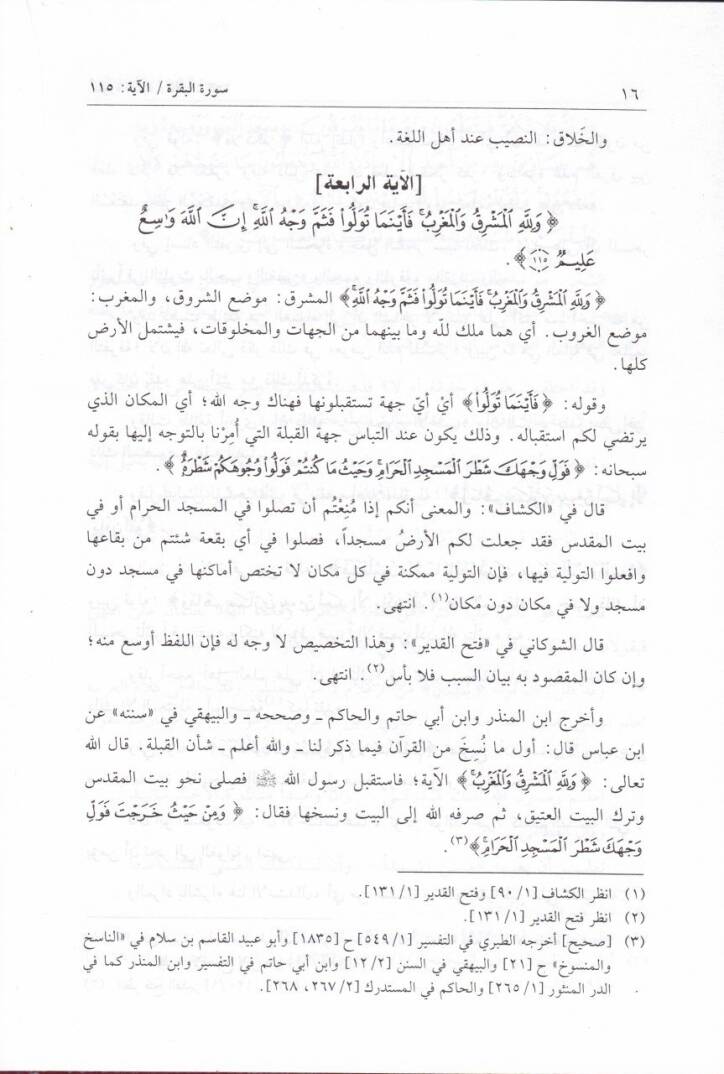 ١٦
سورة البقرة / الآية: ١١٥
والخَلاق: النصيب عند أهل اللغة.
[الآية الرابعة]
﴿ وَلِلَّهِ ٱلْمَشْرِقُ وَٱلْمَغْرِبُ ۚ فَأَيْنَمَا تُوَلُّوا۟ فَثَمَّ وَجْهُ ٱللَّهِ ۚ إِنَّ ٱللَّهَ وَٰسِعٌ
عَلِيمٌ ﴿١١٥﴾ ﴾.
﴿ وَلِلَّهِ ٱلْمَشْرِقُ وَٱلْمَغْرِبُ ۚ فَأَيْنَمَا تُوَلُّوا۟ فَثَمَّ وَجْهُ ٱللَّهِ ۚ ﴾ المشرق: موضع الشروق، والمغرب:
موضع الغروب. أي هما ملك للّه وما بينهما من الجهات والمخلوقات، فيشتمل الأرض
كلها.
وقوله: ﴿ فَأَيْنَمَا تُوَلُّوا۟ ﴾ أيْ أيّ جهة تستقبلونها فهناك وجه الله؛ أي المكان الذي
يرتضي لكم استقباله. وذلك يكون عند التباس جهة القبلة التي أُمِرْنا بالتوجه إليها بقوله
سبحانه: ﴿ فَوَلِّ وَجْهَكَ شَطْرَ ٱلْمَسْجِدِ ٱلْحَرَامِ ۚ وَحَيْثُ مَا كُنتُمْ فَوَلُّوا۟ وُجُوهَكُمْ شَطْرَهُۥ ۗ ﴾.
قال في «الكشاف»: والمعنى أنكم إذا مُنِعْتُم أن تصلوا في المسجد الحرام أو في
بيت المقدس فقد جعلت لكم الأرضُ مسجداً، فصلوا في أي بقعة شئتم من بقاعها
وافعلوا التولية فيها، فإن التولية ممكنة في كل مكان لا تختص أماكنها في مسجد دون
مسجد ولا في مكان دون مكان(١). انتهى.
قال الشوكاني في «فتح القدير»: وهذا التخصيص لا وجه له فإن اللفظ أوسع منه؛
وإن كان المقصود به بيان السبب فلا بأس(٢). انتهى.
وأخرج ابن المنذر وابن أبي حاتم والحاكم ـ وصححه ـ والبيهقي في «سننه» عن
ابن عباس قال: أول ما نُسِخَ من القرآن فيما ذكر لنا ـ والله أعلم ـ شأن القبلة. قال الله
تعالى: ﴿ وَلِلَّهِ ٱلْمَشْرِقُ وَٱلْمَغْرِبُ ۚ ﴾ الآية؛ فاستقبل رسول الله ﷺ فصلى نحو بيت المقدس
وترك البيت العتيق، ثم صرفه الله إلى البيت ونسخها فقال: ﴿ وَمِنْ حَيْثُ خَرَجْتَ فَوَلِّ
وَجْهَكَ شَطْرَ ٱلْمَسْجِدِ ٱلْحَرَامِ ۚ ﴾(٣).
(١) انظر الكشاف [٩٠/١] وفتح القدير [١٣١/١].
(٢) انظر فتح القدير [١٣١/١].
(٣) [صحيح] أخرجه الطبري في التفسير [٥٤٩/١] ح [١٨٣٥] وأبو عبيد القاسم بن سلام في «الناسخ
والمنسوخ» ح [٢١] والبيهقي في السنن [١٢/٢] وابن أبي حاتم في التفسير وابن المنذر كما في
الدر المنثور [٢٦٥/١] والحاكم في المستدرك [٢٦٧/٢، ٢٦٨].